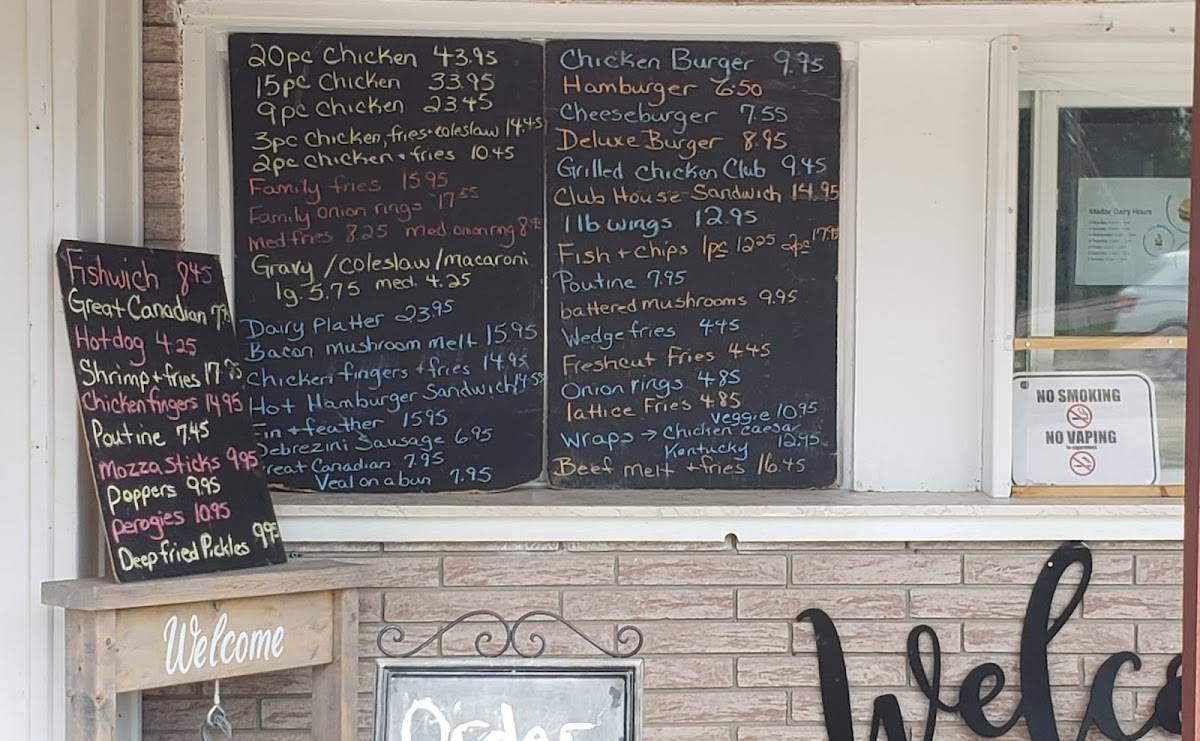 20pc Chicken 43.95
15pc Chicken 33.95
9pc Chicken 23.45
3pc Chicken, fries + coleslaw 14.45
2pc chicken + fries 10.45
Family fries 15.95
Family Onion rings 17.55
Med fries 8.25 med onion ring
Gravy / coleslaw / macaroni
lg. 5.75 med. 4.25
Dairy Platter 23.95
Bacon mushroom melt 15.95
Chicken fingers + fries 14.95
Hot Hamburger Sandwich 14.55
Fin + feather 15.95
Debrezini Sausage 6.95
Great Canadian 7.95
Veal on a bun 7.95
Chicken Burger 9.95
Hamburger 6.50
Cheeseburger 7.55
Deluxe Burger 8.95
Grilled Chicken Club 9.45
Club House Sandwich 14.95
1 lb wings 12.95
Fish + Chips 1pc 12.25 2pc 17.95
Poutine 7.95
battered mushrooms 9.95
Wedge fries 4.45
Freshcut Fries 4.45
Onion rings 4.85
lattice Fries 4.85
Veggie 10.95
Wraps → Chicken Caesar
Kentucky 12.95
Beef melt + fries 16.45
Fishwich 8.45
Great Canadian
Hotdog 4.25
Shrimp + fries
Chicken fingers 14.95
Poutine 7.45
Mozza Sticks 9.95
Poppers 9.95
perogies 10.95
Deep fried Pickles 9.95
Welcome
Order
Madoc Dairy Hours
NO SMOKING
NO VAPING
Welco